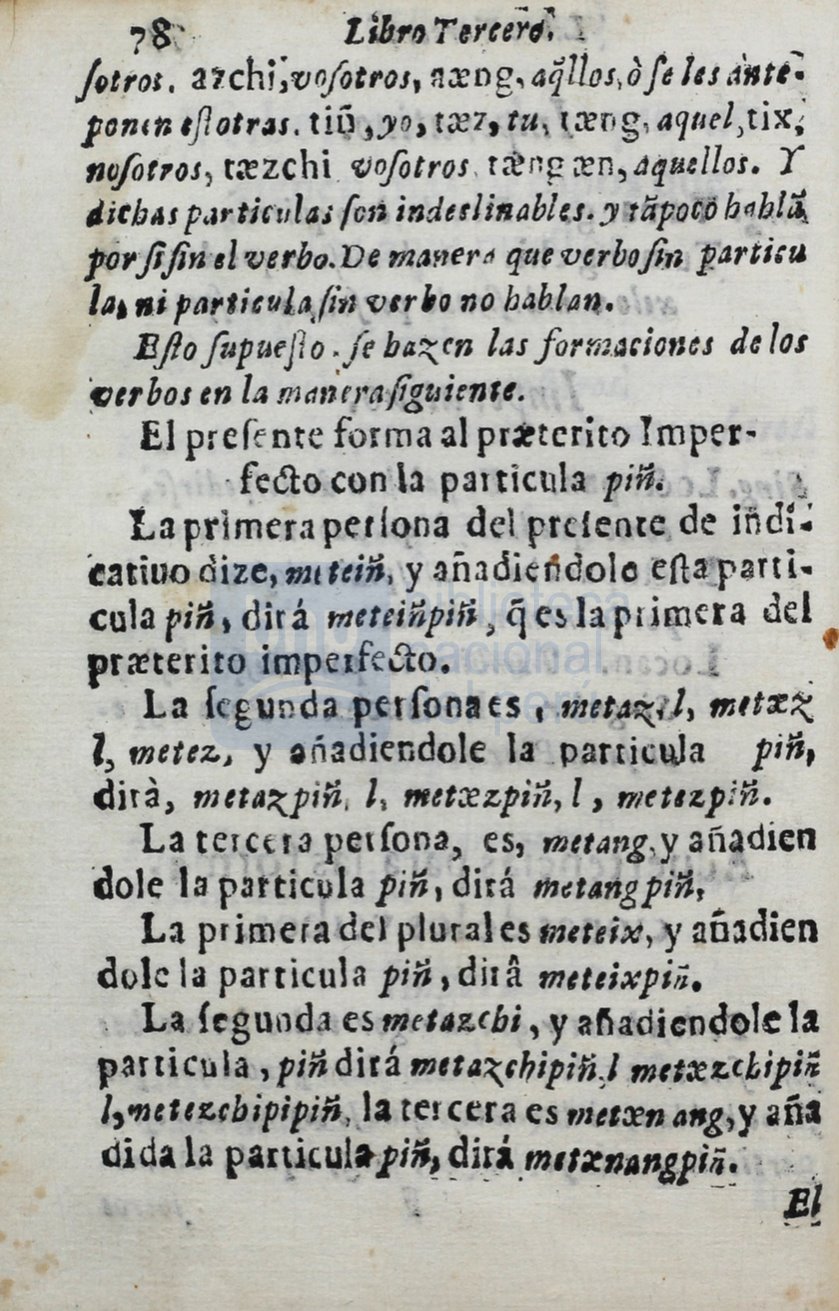 78 Libro Tercero.
ſotros. azchi, voſotros, æng, aq̃llos, ò ſe les ante-
ponen eſtotras. tiñ, yo, tæz, tu, tæng, aquel, tix,
noſotros, tæzchi voſotros tængæn, aquellos. Y
dichas particulas ſon indeclinables. y tãpoco hablã
por ſi ſin el verbo. De manera que verbo ſin particu
la, ni particula ſin verbo no hablan.
Eſto ſupueſto. ſe hazen las formaciones de los
verbos en la manera ſiguiente.
El preſente forma al præterito Imper-
fecto con la particula piñ.
La primera perſona del preſente de indi-
catiuo dize, meteiñ, y añadiendole eſta parti-
cula piñ, dirá meteiñpiñ, q̃ es la primera del
præterito imperfecto.
La ſegunda perſona es, metaz, l, metxz
l, metez, y añadiendole la particula piñ,
dirà, metazpiñ, l, metæzpiñ, l, metezpiñ.
La tercera perſona, es, metang, y añadien
dole la particula piñ, dirá metangpiñ,
La primera del plural es meteix, y añadien
dole la particula piñ, dirâ meteixpiñ.
La ſegunda es metazchi, y añadiendole la
particula, piñ dirá metazchipiñ, l metæzchipiñ
l, metezchipipiñ, la tercera es metæn ang, y aña
dida la particula piñ, dirá metænangpiñ.
El